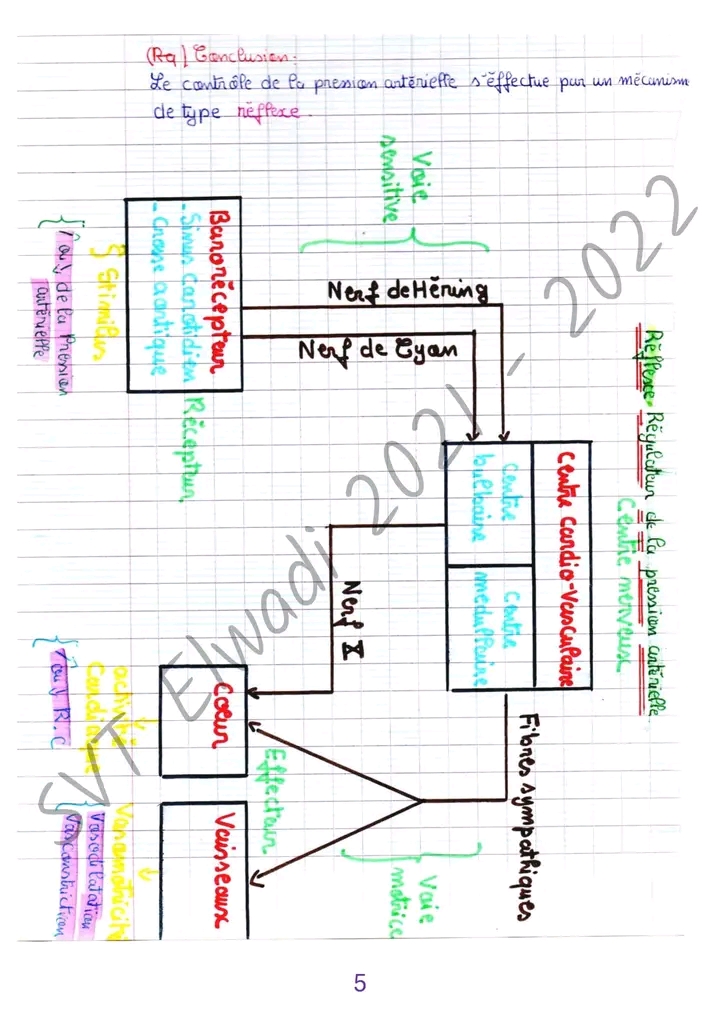 (Rq) Conclusion:
Le contrôle de la pression artérielle s'effectue par un mécanism
de type réflexe.
Réflexe Régulateur de la pression artérielle
Centre nerveux
Centre Cardio-Vasculaire
Centre
bulbaire
Centre
médullaire
Voie
sensitive
Nerf de Hering
Nerf de Cyon
Barorécepteur
- Sinus Carotidien
- Crosse aortique
Récepteur
Stimulus
ou de la Pression
artérielle
Nerf X
Fibres sympathiques
Voie
motrice
Effecteur
Coeur
activité
Cardiaque
ou R.C
Vaisseaux
Vasomotricité
Vasodilatation
Vasoconstriction
SVT Elwadi 2021 - 2022
5